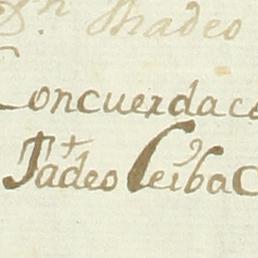 Dn Thadeo
Concuerda co
Tadeo Ceiba